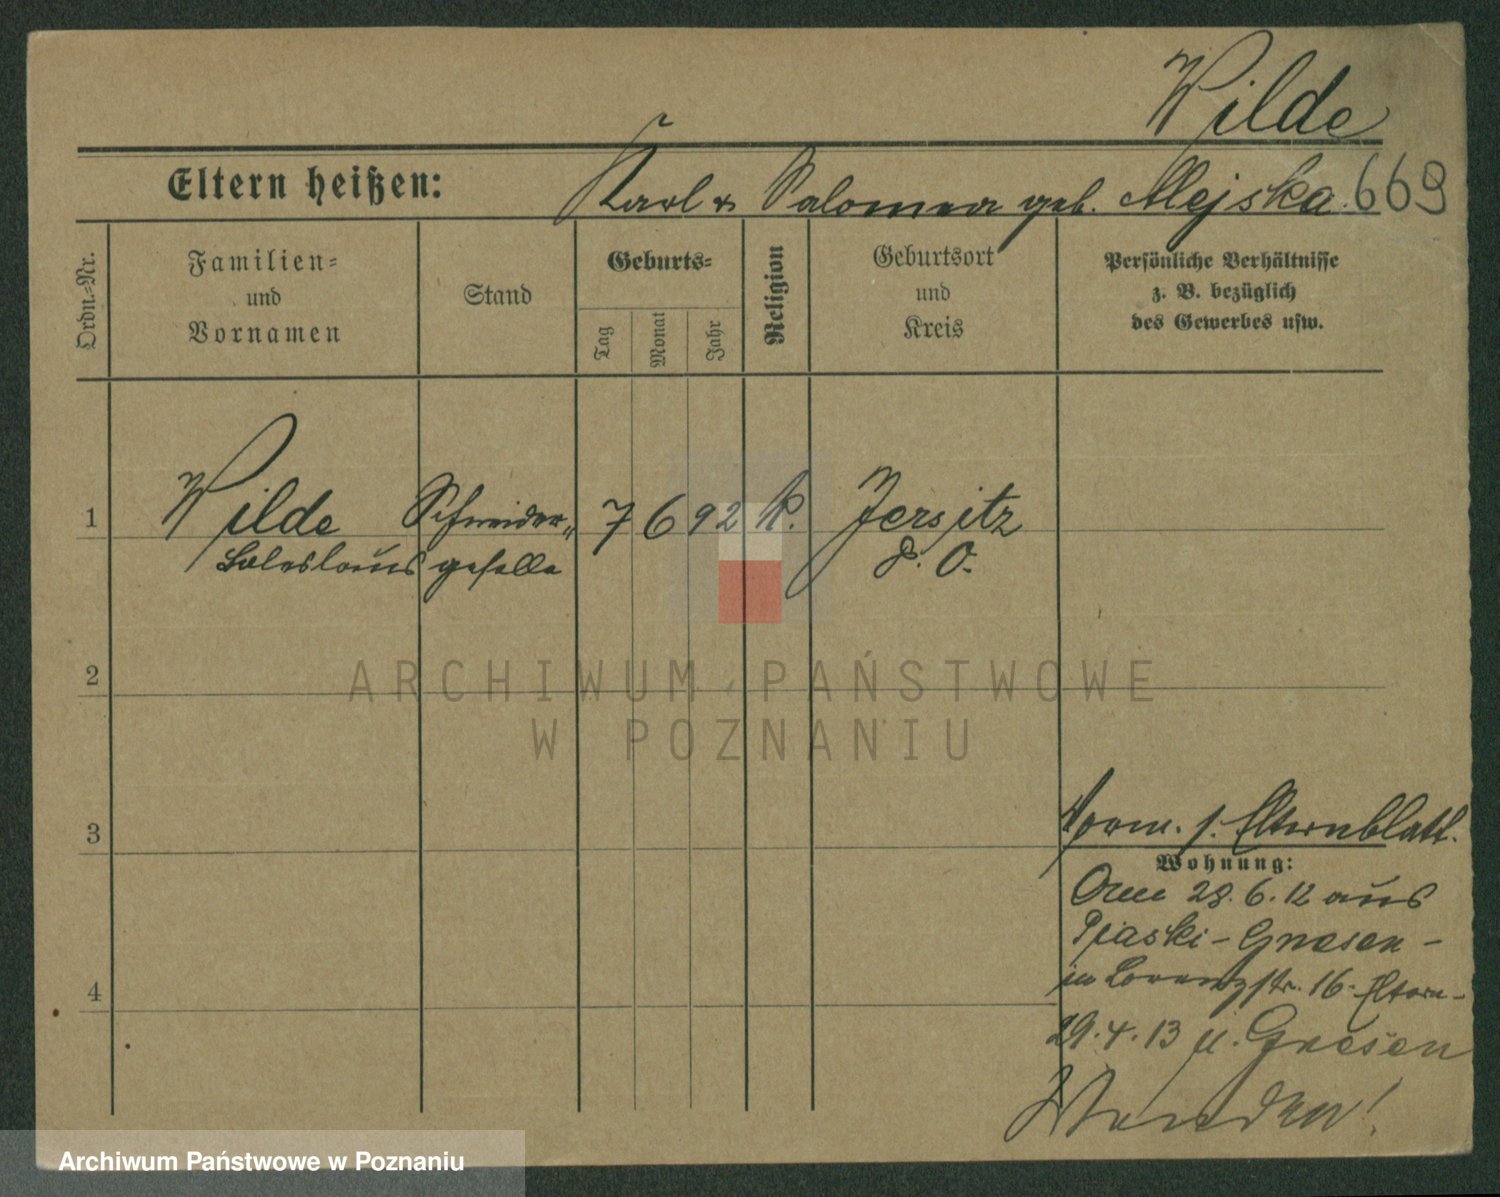 Wilde
Eltern heißen: Karl u Salomea geb. Alejska 669
Ordn.-Nr.
Familien-
und
Vornamen
Stand
Geburts-
Tag Monat Jahr
Religion
Geburtsort
und
Kreis
Persönliche Verhältnisse
z. B. bezüglich
des Gewerbes usw.
1 Wilde Schneider„ 7 6 92 k. Jersitz
Boleslaus geselle P. O.
2
3
Vorm. s. Elternblatt.
Wohnung:
28. 6. 12 aus
Piaski - Gnesen -
in Lorenzstr. 16. Eltern -
4
29. 4. 13 n. Gnesen
Wenden!
ARCHIWUM PAŃSTWOWE
W POZNANIU
Archiwum Państwowe w Poznaniu